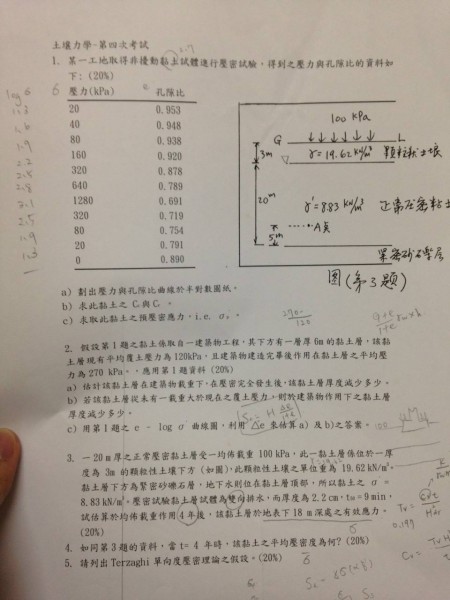 土壤力學-第四次考試
1. 某一工地取得非擾動黏土試體進行壓密試驗，得到之壓力與孔隙比的資料如
下: (20%)
壓力(kPa) 孔隙比
20 0.953
40 0.948
80 0.938
160 0.920
320 0.878
640 0.789
1280 0.691
320 0.719
80 0.754
20 0.791
0 0.890
100 kPa
G L
3m γ = 19.62 kN/m³ 顆粒狀土壤
20m γ' = 8.83 kN/m³ 正常壓密黏土
5m A點
緊密砂礫層
圖(第3題)
a) 劃出壓力與孔隙比曲線於半對數圖紙。
b) 求此黏土之 Cc與Cs 。
c) 求取此黏土之預壓密應力，i.e. σc 。
2. 假設第1題之黏土係取自一建築物工程，其下方有一層厚6m的黏土層，該黏
土層現有平均覆土壓力為120kPa，且建築物建造完畢後作用在黏土層之平均壓
力為 270 kPa。，應用第1題資料 (20%)
a) 估計該黏土層在建築物載重下，在壓密完全發生後，該黏土層厚度減少多少。
b) 若該黏土層從未有一載重大於現在之覆土壓力，則於建築物作用下之黏土層
厚度減少多少。
c) 用第1題之 e - log σ 曲線圖，利用 Δe 來估算a) 及b)之答案。
3. 一20 m厚之正常壓密黏土層受一均佈載重 100 kPa，此一黏土層係位於一厚
度為 3m 的顆粒性土壤下方（如圖），此顆粒性土壤之單位重為 19.62 kN/m³。
黏土層下方為緊密砂礫石層，地下水則位在黏土層頂部，所以黏土之 σ' =
8.83 kN/m³。壓密試驗黏土層試體為雙向排水，而厚度為2.2 cm，t₅₀ = 9 min，
試估算於均佈載重作用4年後，該黏土層於地表下 18 m深處之有效應力。
(20%)
4. 如同第3題的資料，當 t= 4 年時，該黏土之平均壓密度為何? (20%)
5. 請列出Terzaghi 單向度壓密理論之假設。(20%)